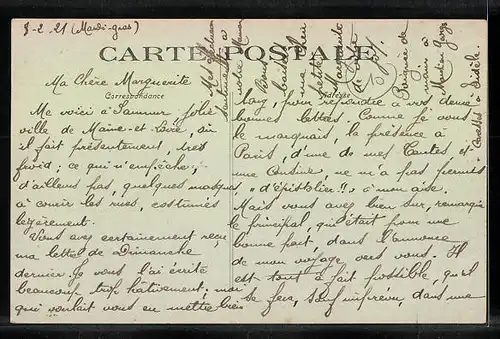 8-2.21 (Mardi-gras)
CARTE POSTALE
Correspondance
Adresse
Ma Chère Marguerite
Me voici à Saumur, jolie
ville de Maine-et-Loire, où
il fait présentement, très
froid; ce qui n'empêche,
d'ailleurs pas, quelques masques
à courir les rues, costumés
légèrement.
Vous avez certainement reçu
ma lettre de Dimanche
dernier. Je vous l'ai écrite
beaucoup trop hâtivement, moi
qui voulait vous en mettre bien
long, pour répondre à vos deux
bonnes lettres. Comme je vous
le marquais, la présence à
Paris, d'une de mes Tantes et
une Cousine, ne m'a pas permis
d'épistolier!! à mon aise.
Mais vous avez bien su, remarquer
le principal, qui était pour une
bonne part, dans l'annonce
de mon voyage vers vous. Il
est tout à fait possible, qu'il
se fera, sauf imprévu, dans une